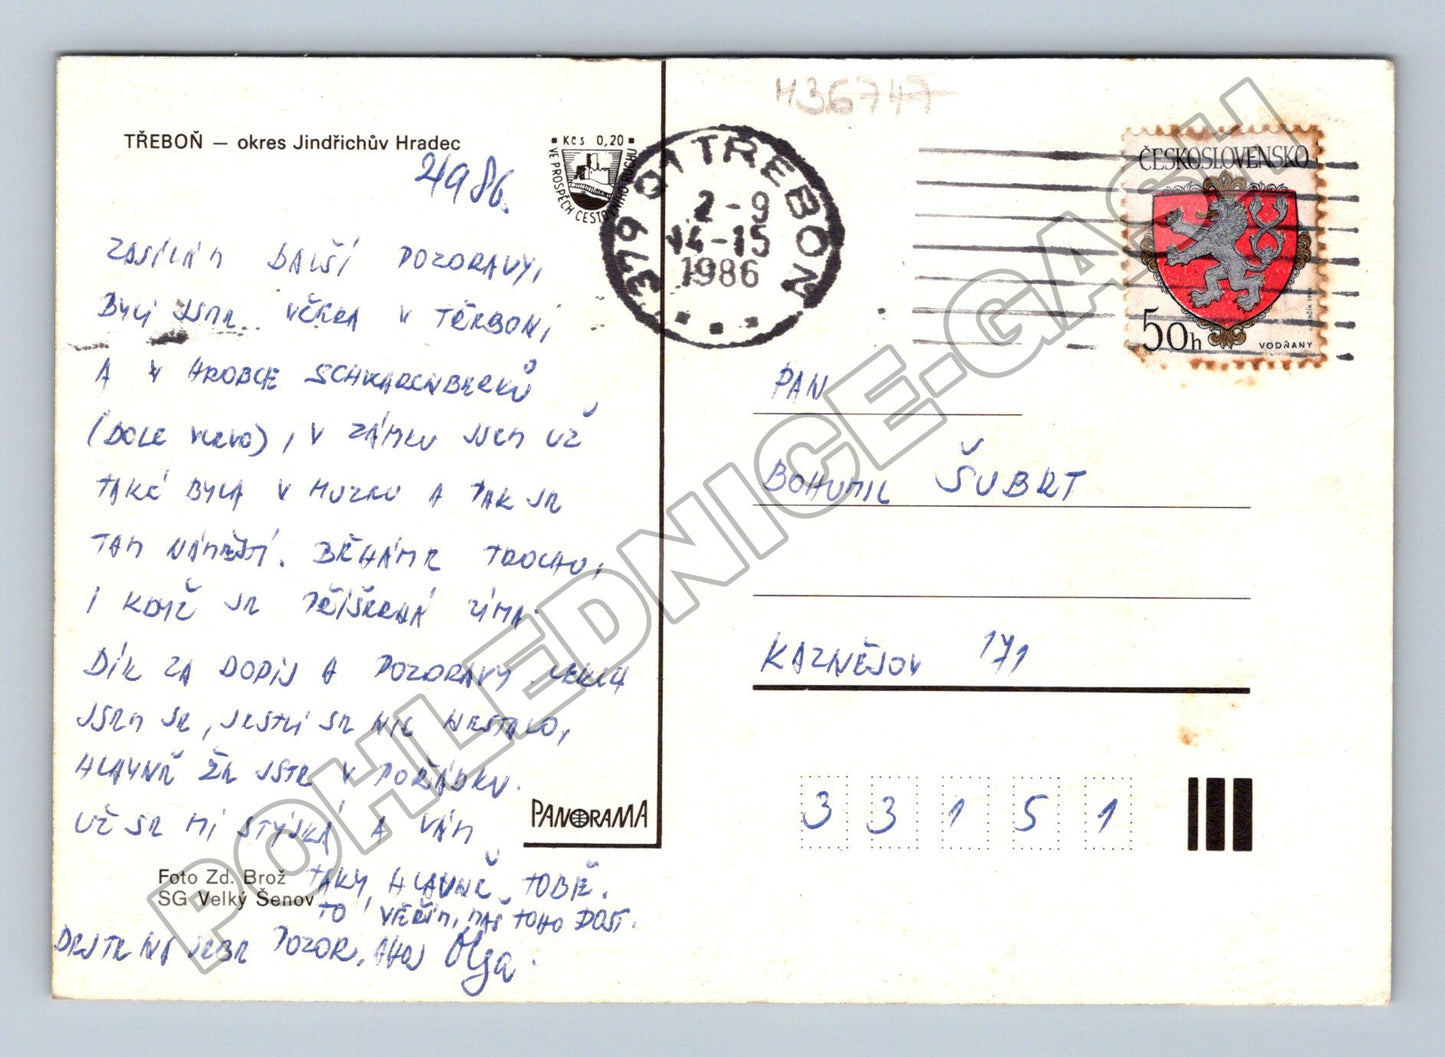 TŘEBOŇ – okres Jindřichův Hradec
2/9 86.
Kčs 0,20
VE PROSPĚCH CESTOVNÍHO RUCHU
379 01 TŘEBOŇ
2-9
14-15
1986
H36747
ČESKOSLOVENSKO
50h
VODŇANY
ZASÍLÁM DALŠÍ POZDRAVY,
BYLI JSME VČERA V TŘEBONI
A V HROBCE SCHWARCENBERKŮ
(DOLE VLEVO), V ZÁMKU JSEM UŽ
TAKÉ BYLA V MUZEU A PAK JE
TAM NÁMĚSTÍ. BĚHÁME TROCHU,
I KDYŽ JE PŘÍŠERNÁ ZIMA.
DÍK ZA DOPIS A POZDRAVY LEKLA
JSEM SE, JESTLI SE NIC NESTALO,
HLAVNĚ ŽE JSTE V POŘÁDKU.
UŽ SE MI STÝSKÁ A VÁM
TAKY, HLAVNĚ TOBĚ.
TO VĚŘÍM, MÁŠ TOHO DOST.
DEJTE NA SEBE POZOR, AHOJ Olga.
PANORAMA
Foto Zd. Brož
SG Velký Šenov
PAN
BOHUMIL ŠUBRT
KAZNĚJOV 171
33151
POHLEDNICE-GASH